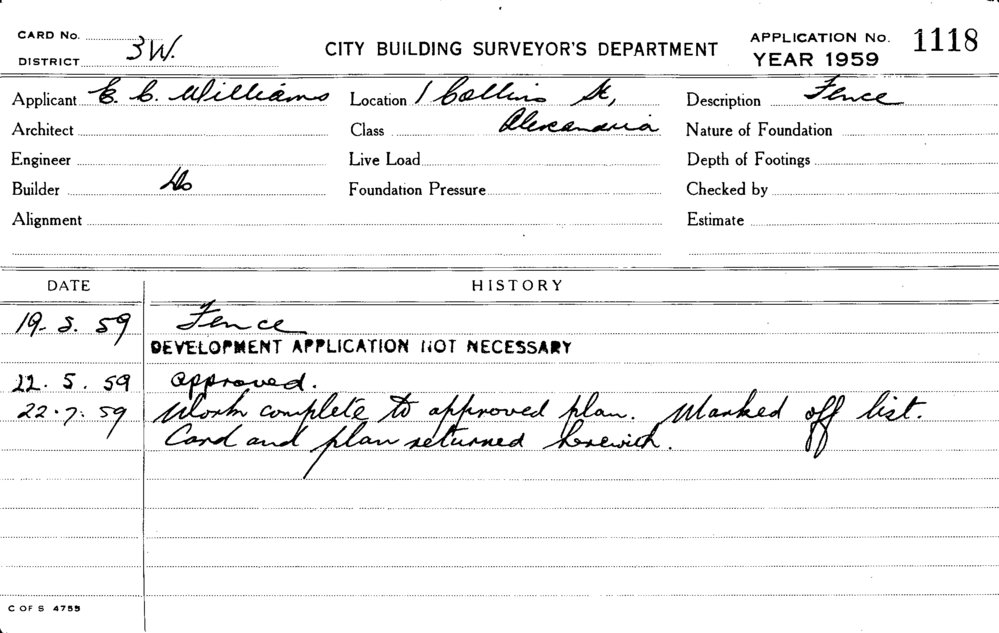 CARD No.
DISTRICT 3W.
CITY BUILDING SURVEYOR'S DEPARTMENT
APPLICATION No. 1118
YEAR 1959
Applicant E. C. Williams Location 1 Collins St, Description Fence
Architect Class Alexandria Nature of Foundation
Engineer Live Load Depth of Footings
Builder Do Foundation Pressure Checked by
Alignment Estimate
DATE HISTORY
19. 5. 59 Fence
DEVELOPMENT APPLICATION NOT NECESSARY
22. 5. 59 approved.
22. 7. 59 Work complete to approved plan. Marked off list.
Card and plan returned herewith.
C OF S 4755